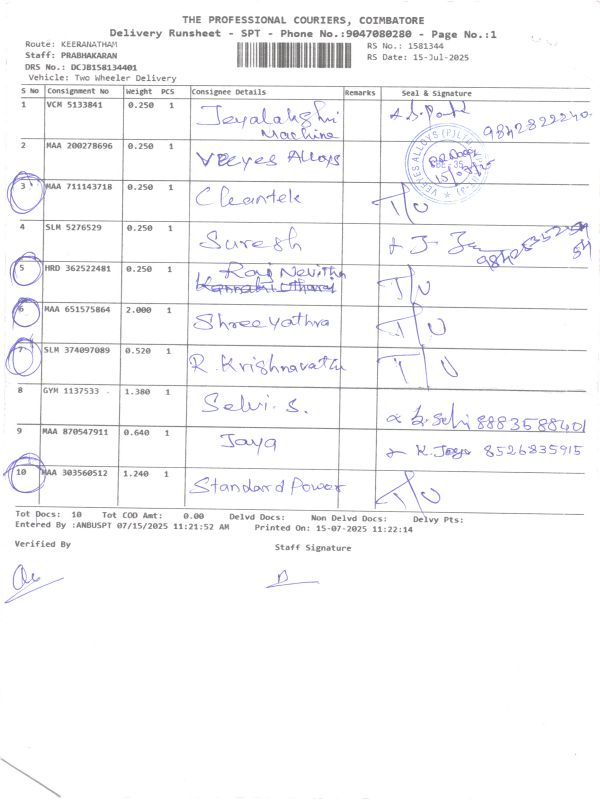 THE PROFESSIONAL COURIERS, COIMBATORE
Delivery Runsheet - SPT - Phone No.:9047080280 - Page No.:1
Route: KEERANATHAM RS No.: 1581344
Staff: PRABHAKARAN RS Date: 15-Jul-2025
DRS No.: DCJB158134401
Vehicle: Two Wheeler Delivery
S No Consignment No Weight PCS Consignee Details Remarks Seal & Signature
1 VCM 5133841 0.250 1 Jeyalakshmi
Machine 9842822240
2 MAA 200278696 0.250 1 VEEyes Alloys
3 MAA 711143718 0.250 1 Cleantek T/U
4 SLM 5276529 0.250 1 Suresh
5 HRD 362522481 0.250 1 Raj Nevitha T/U
6 MAA 651575864 2.000 1 Shree yathra T/U
7 SLM 374097089 0.520 1 R. Krishnavathi T/U
8 GYM 1137533 1.380 1 Selvi. S. 8883588401
9 MAA 870547911 0.640 1 Jaya K. Jaya 8526835915
10 MAA 303560512 1.240 1 Standard Power T/U
Tot Docs: 10 Tot COD Amt: 0.00 Delvd Docs: Non Delvd Docs: Delvy Pts:
Entered By :ANBUSPT 07/15/2025 11:21:52 AM Printed On: 15-07-2025 11:22:14
Verified By Staff Signature